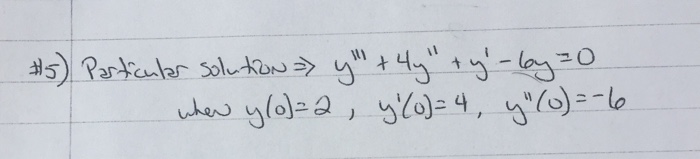 #5) Particular solution ⇒ y''' + 4y'' + y' - 6y = 0
when y(0)=2, y'(0)=4, y''(0)=-6